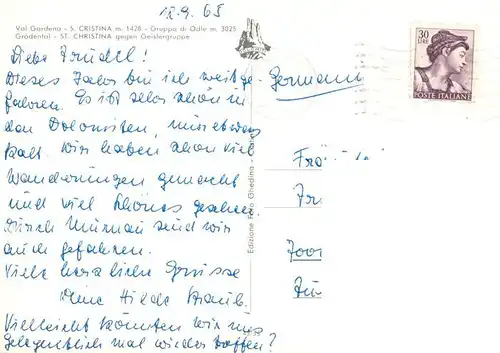 12.9.65
Val Gardena - S. CRISTINA m. 1428 - Gruppo di Odle m. 3025
Grödental - ST. CHRISTINA gegen Geislergruppe
30
LIRE
POSTE ITALIANE
Liebe Trudel!
Dieses Jahr bin ich weit ge-
fahren. Es ist sehr schön in
den Dolomiten, nur etwas
kalt. Wir haben schon viel
Wanderungen gemacht
und viel schönes gesehen.
Durch Murnau sind wir
auch gefahren.
Viele herzliche Grüsse
Deine Hilde
Vielleicht könnten wir uns
gelegentlich mal wieder treffen?
Germania
Edizione Foto Ghedina